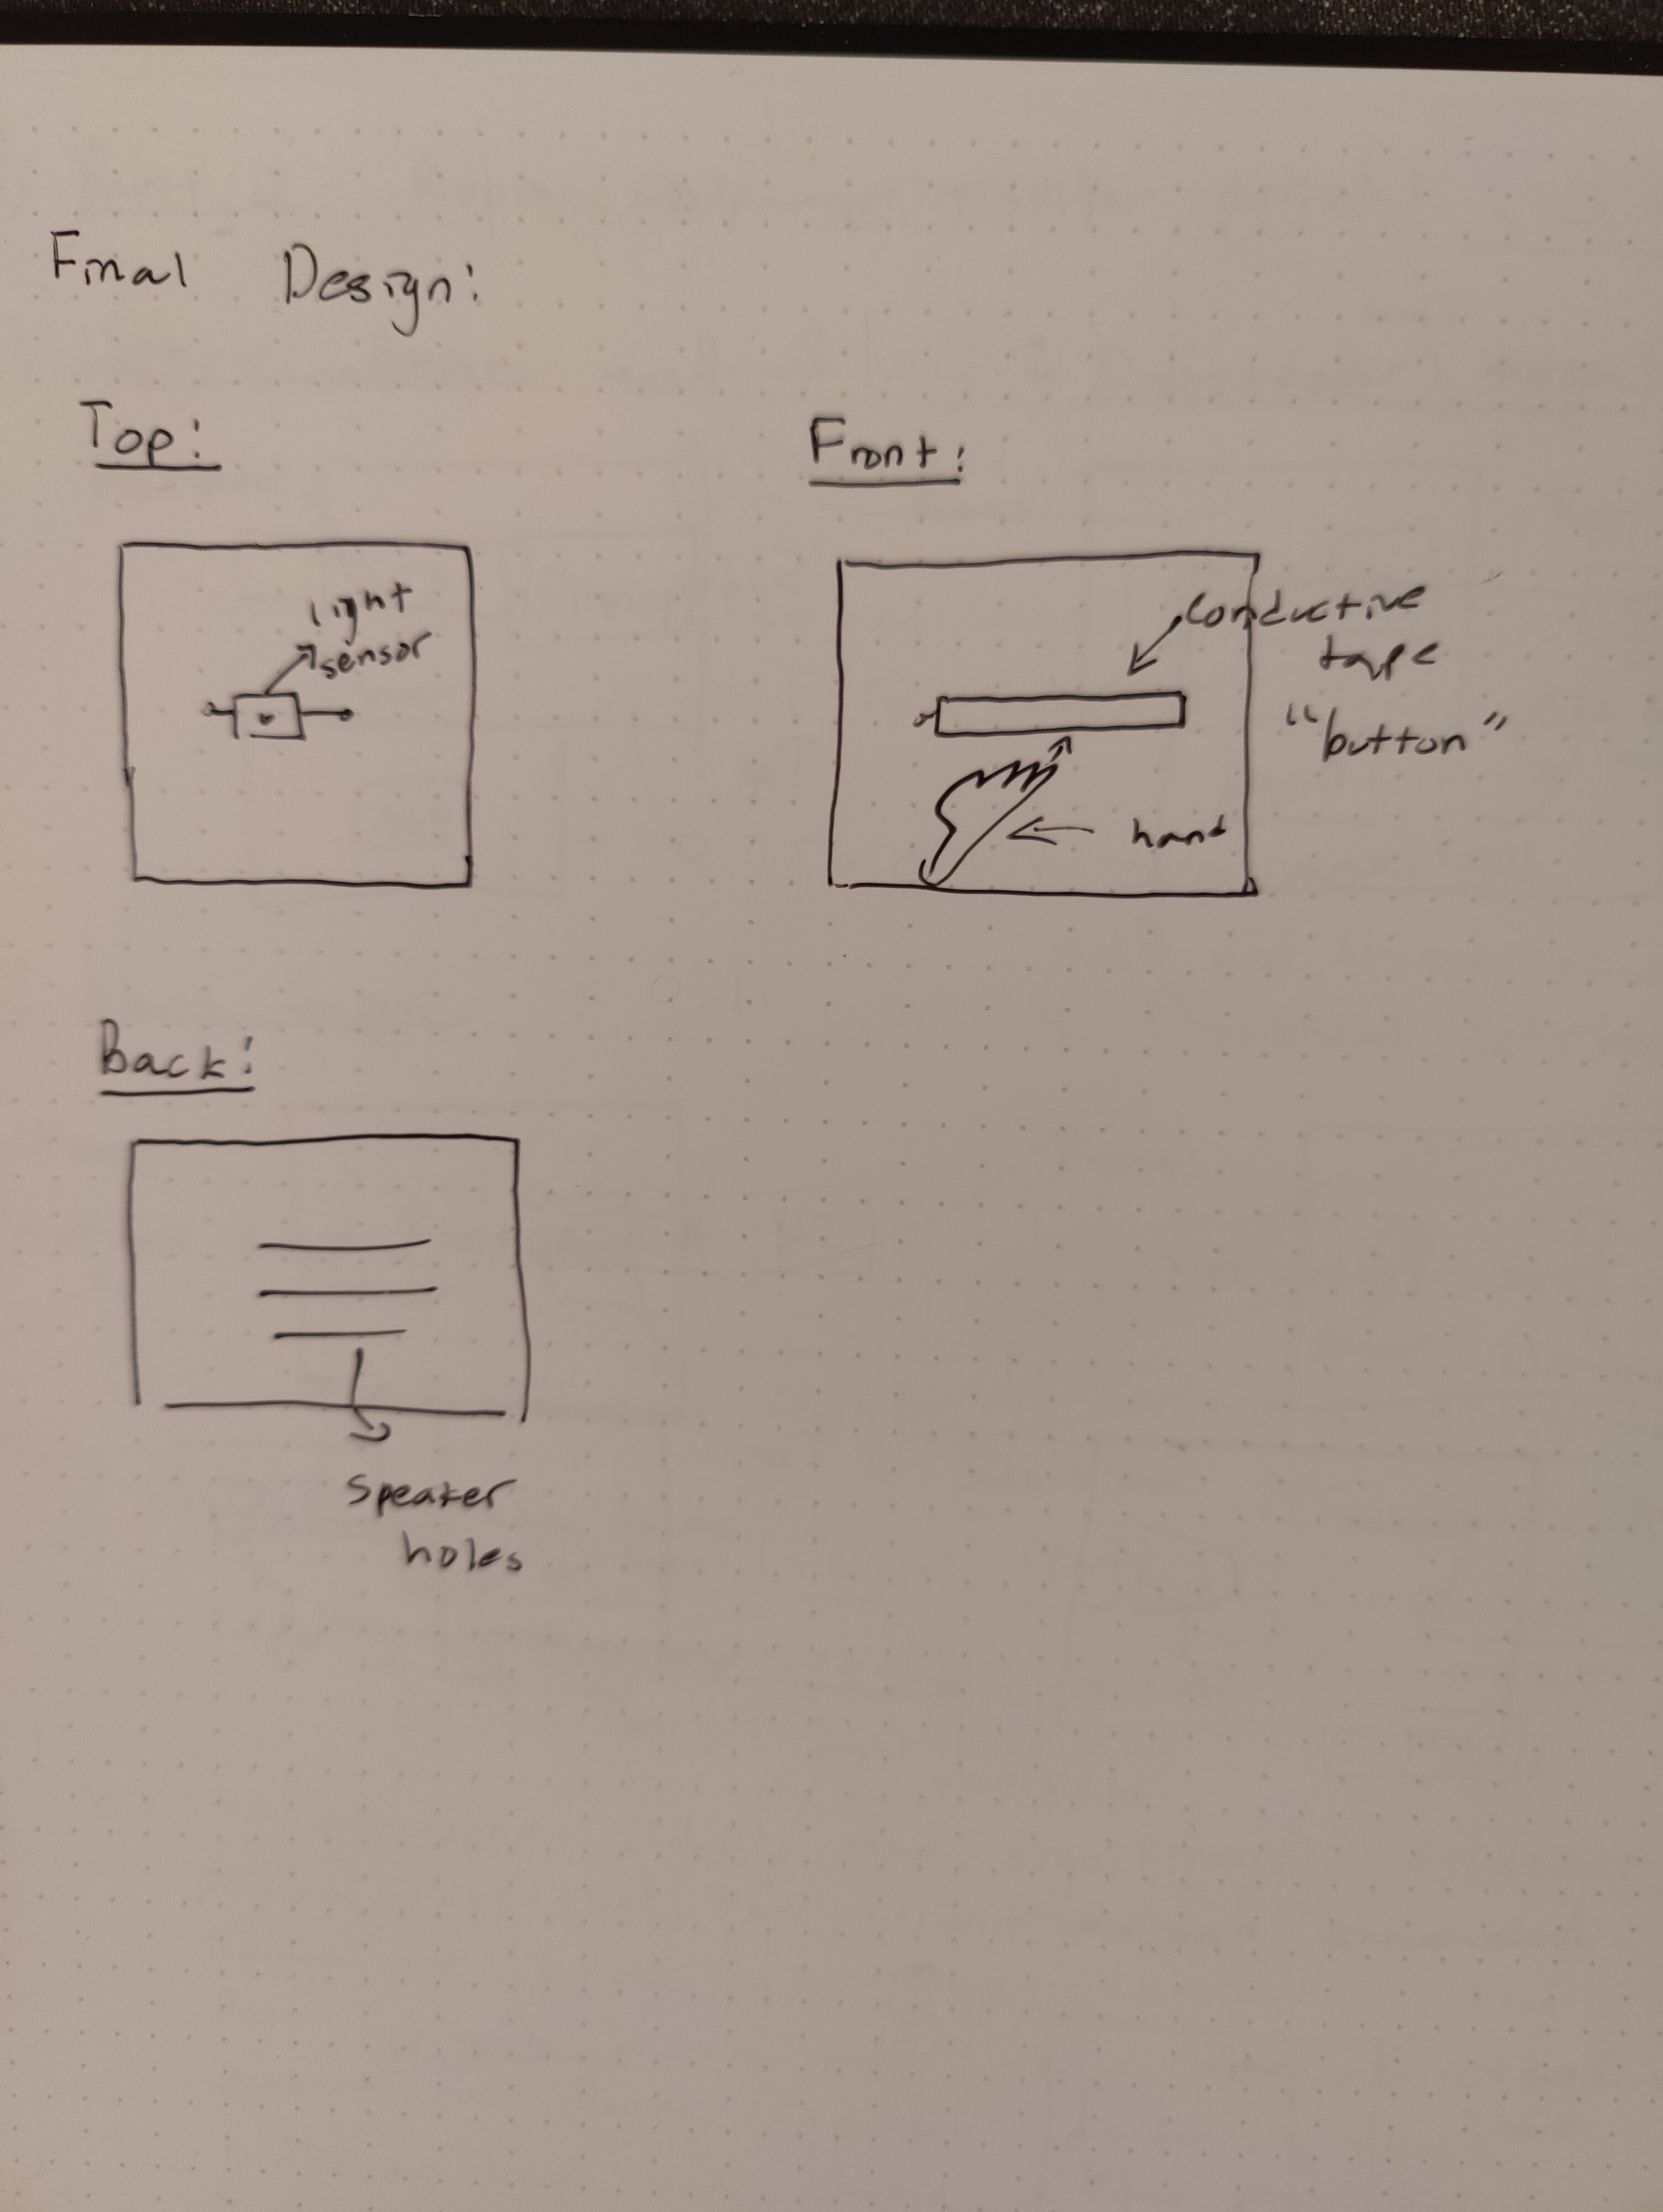 Final Design:
Top:
light
sensor
Front:
conductive
tape
"button"
hand
Back:
speaker
holes